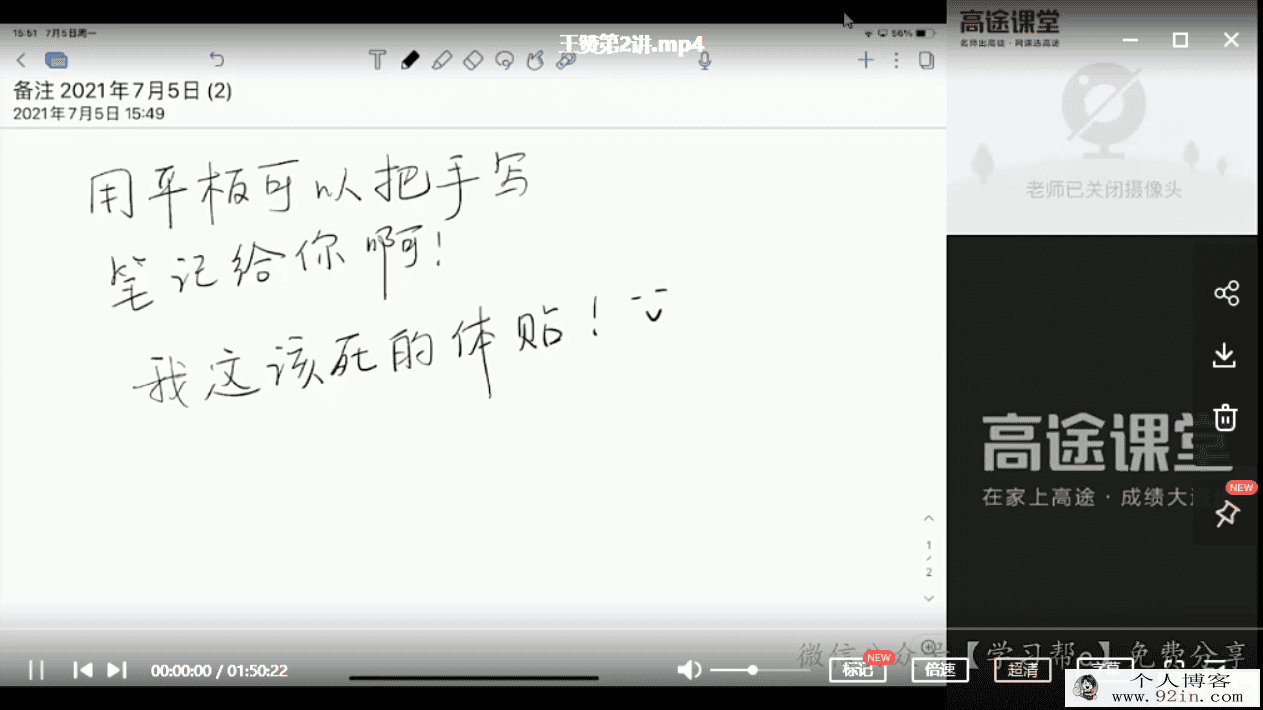 15:51 7月5日周一
56%
王赞第2讲.mp4
备注 2021年7月5日 (2)
2021年7月5日 15:49
用平板可以把手写
笔记给你啊!
我这该死的体贴!
1
/
2
高途课堂
名师出高徒·网课选高途
老师已关闭摄像头
高途课堂
在家上高途·成绩大
NEW
00:00:00 / 01:50:22
标记
NEW
倍速
超清
字幕
微信公众号【学习帮e】免费分享
个人博客
www.92in.com